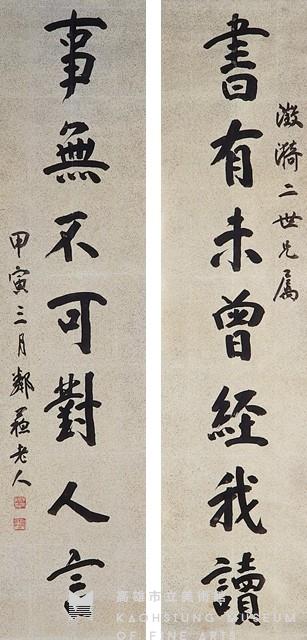 書有未曾經我讀
澂漪二世兄屬
事無不可對人言
甲寅三月鄰蘇老人
高雄市立美術館
KAOHSIUNG MUSEUM
OF FINE ARTS